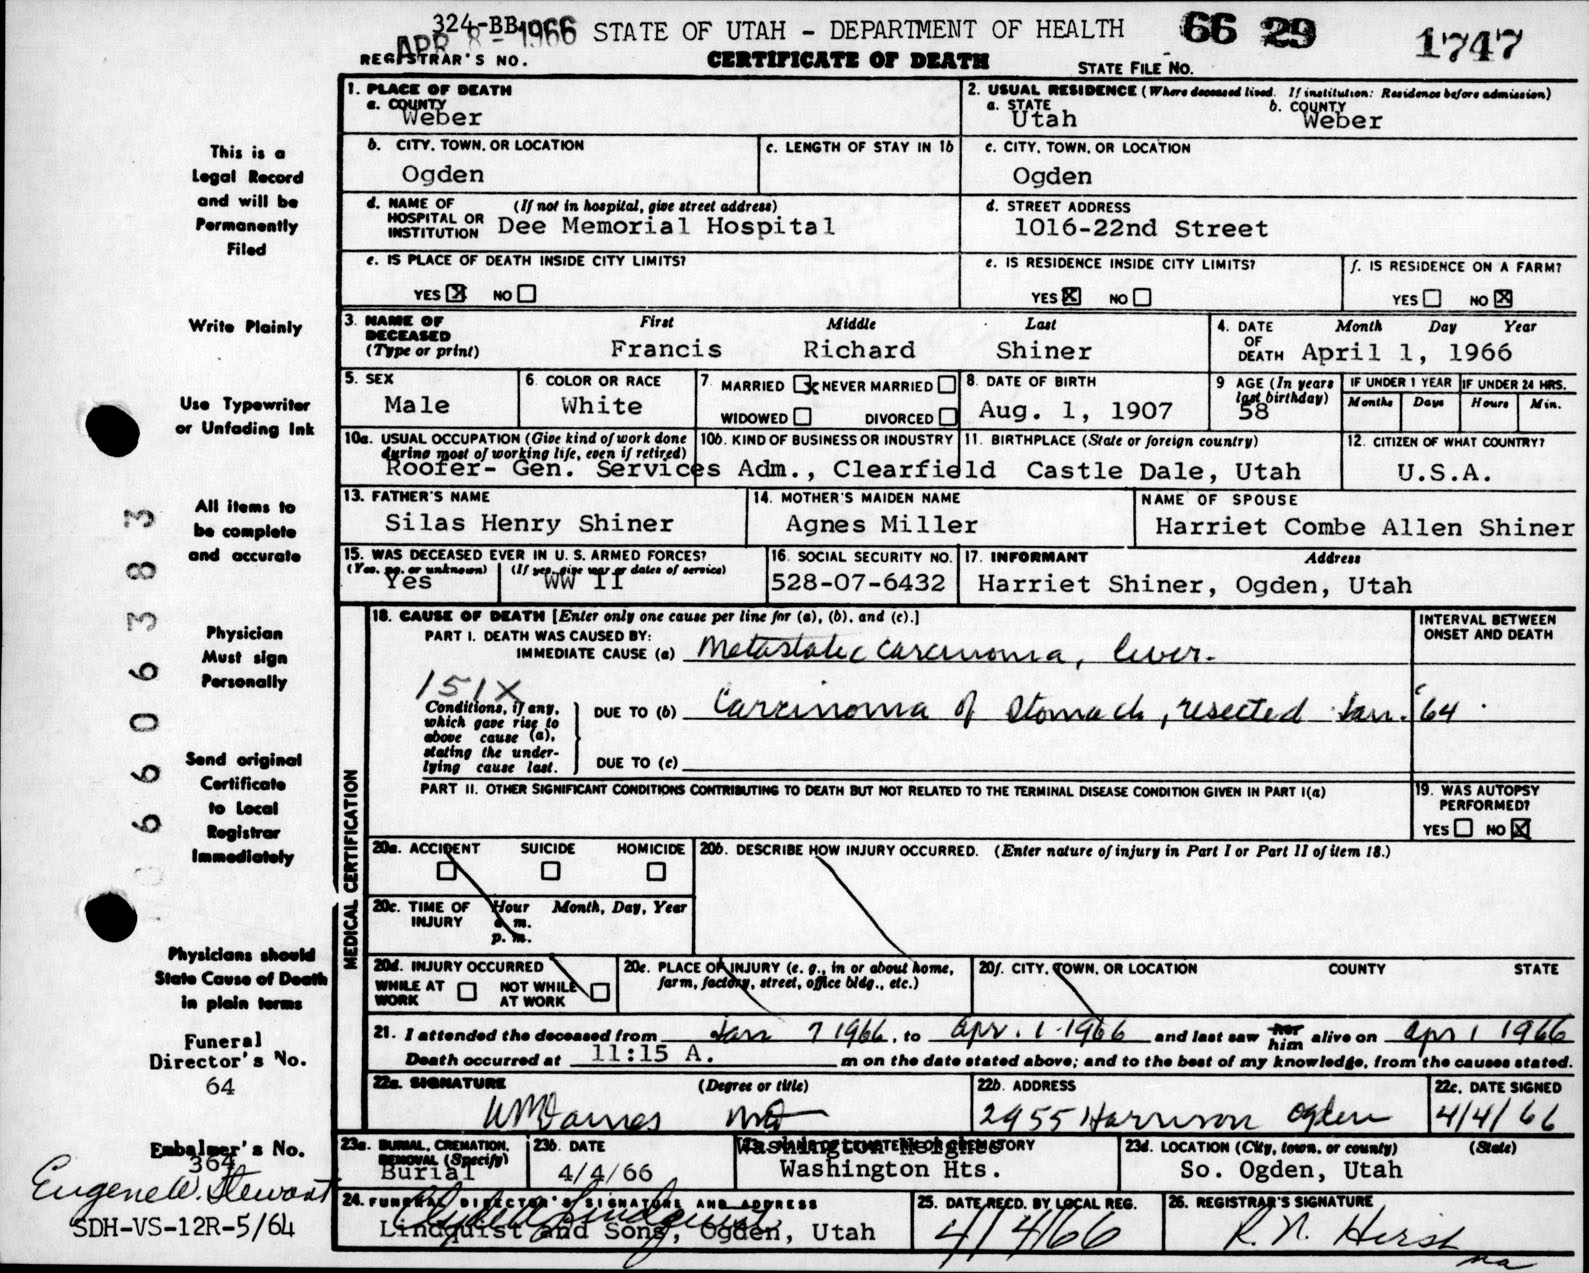 324-BB
APR 8 - 1966 STATE OF UTAH - DEPARTMENT OF HEALTH 66 29 1747
REGISTRAR'S NO. CERTIFICATE OF DEATH STATE FILE NO.
This is a
Legal Record
and will be
Permanently
Filed
Write Plainly
Use Typewriter
or Unfading Ink
All items to
be complete
and accurate
Physician
Must sign
Personally
Send original
Certificate
to Local
Registrar
Immediately
Physicians should
State Cause of Death
in plain terms
Funeral
Director's No.
64
Embalmer's No.
364
Eugene W. Stewart
SDH-VS-12R-5/64
66063383
1. PLACE OF DEATH
a. COUNTY
Weber
2. USUAL RESIDENCE (Where deceased lived. If institution: Residence before admission)
a. STATE b. COUNTY
Utah Weber
b. CITY, TOWN, OR LOCATION c. LENGTH OF STAY IN 1b c. CITY, TOWN, OR LOCATION
Ogden Ogden
d. NAME OF HOSPITAL OR INSTITUTION (If not in hospital, give street address)
Dee Memorial Hospital
d. STREET ADDRESS
1016-22nd Street
e. IS PLACE OF DEATH INSIDE CITY LIMITS?
YES NO
e. IS RESIDENCE INSIDE CITY LIMITS?
YES NO
f. IS RESIDENCE ON A FARM?
YES NO
3. NAME OF DECEASED (Type or print) First Middle Last
Francis Richard Shiner
4. DATE OF DEATH Month Day Year
April 1, 1966
5. SEX
Male
6. COLOR OR RACE
White
7. MARRIED NEVER MARRIED
WIDOWED DIVORCED
8. DATE OF BIRTH
Aug. 1, 1907
9 AGE (In years last birthday)
58
IF UNDER 1 YEAR IF UNDER 24 HRS.
Months Days Hours Min.
10a. USUAL OCCUPATION (Give kind of work done during most of working life, even if retired)
10b. KIND OF BUSINESS OR INDUSTRY
Roofer- Gen. Services Adm., Clearfield
11. BIRTHPLACE (State or foreign country)
Castle Dale, Utah
12. CITIZEN OF WHAT COUNTRY?
U.S.A.
13. FATHER'S NAME
Silas Henry Shiner
14. MOTHER'S MAIDEN NAME
Agnes Miller
NAME OF SPOUSE
Harriet Combe Allen Shiner
15. WAS DECEASED EVER IN U. S. ARMED FORCES?
(Yes, no, or unknown) (If yes, give war or dates of service)
Yes WW II
16. SOCIAL SECURITY NO.
528-07-6432
17. INFORMANT Address
Harriet Shiner, Ogden, Utah
MEDICAL CERTIFICATION
18. CAUSE OF DEATH [Enter only one cause per line for (a), (b), and (c).]
INTERVAL BETWEEN
ONSET AND DEATH
PART I. DEATH WAS CAUSED BY:
IMMEDIATE CAUSE (a) Metastatic carcinoma, liver.
151X
Conditions, if any,
which gave rise to
above cause (a),
stating the under-
lying cause last.
DUE TO (b) Carcinoma of stomach, resected Jan. '64.
DUE TO (c)
PART II. OTHER SIGNIFICANT CONDITIONS CONTRIBUTING TO DEATH BUT NOT RELATED TO THE TERMINAL DISEASE CONDITION GIVEN IN PART I(a)
19. WAS AUTOPSY
PERFORMED?
YES NO
20a. ACCIDENT SUICIDE HOMICIDE
20b. DESCRIBE HOW INJURY OCCURRED. (Enter nature of injury in Part I or Part II of item 18.)
20c. TIME OF INJURY Hour Month, Day, Year
a. m.
p. m.
20d. INJURY OCCURRED
WHILE AT WORK NOT WHILE AT WORK
20e. PLACE OF INJURY (e. g., in or about home,
farm, factory, street, office bldg., etc.)
20f. CITY, TOWN, OR LOCATION COUNTY STATE
21. I attended the deceased from Jan 7 1966, to Apr. 1 1966 and last saw her him alive on Apr 1 1966
Death occurred at 11:15 A. m on the date stated above; and to the best of my knowledge, from the causes stated.
22a. SIGNATURE (Degree or title)
MD
22b. ADDRESS
2955 Harrison Ogden
22c. DATE SIGNED
4/4/66
23a. BURIAL, CREMATION,
REMOVAL (Specify)
Burial
23b. DATE
4/4/66
23c. NAME OF CEMETERY OR CREMATORY
Washington Heights
Washington Hts.
23d. LOCATION (City, town, or county) (State)
So. Ogden, Utah
24. FUNERAL DIRECTOR'S SIGNATURE AND ADDRESS
Lindquist and Sons, Ogden, Utah
25. DATE RECD. BY LOCAL REG.
4/4/66
26. REGISTRAR'S SIGNATURE
R. N. Hirst
na